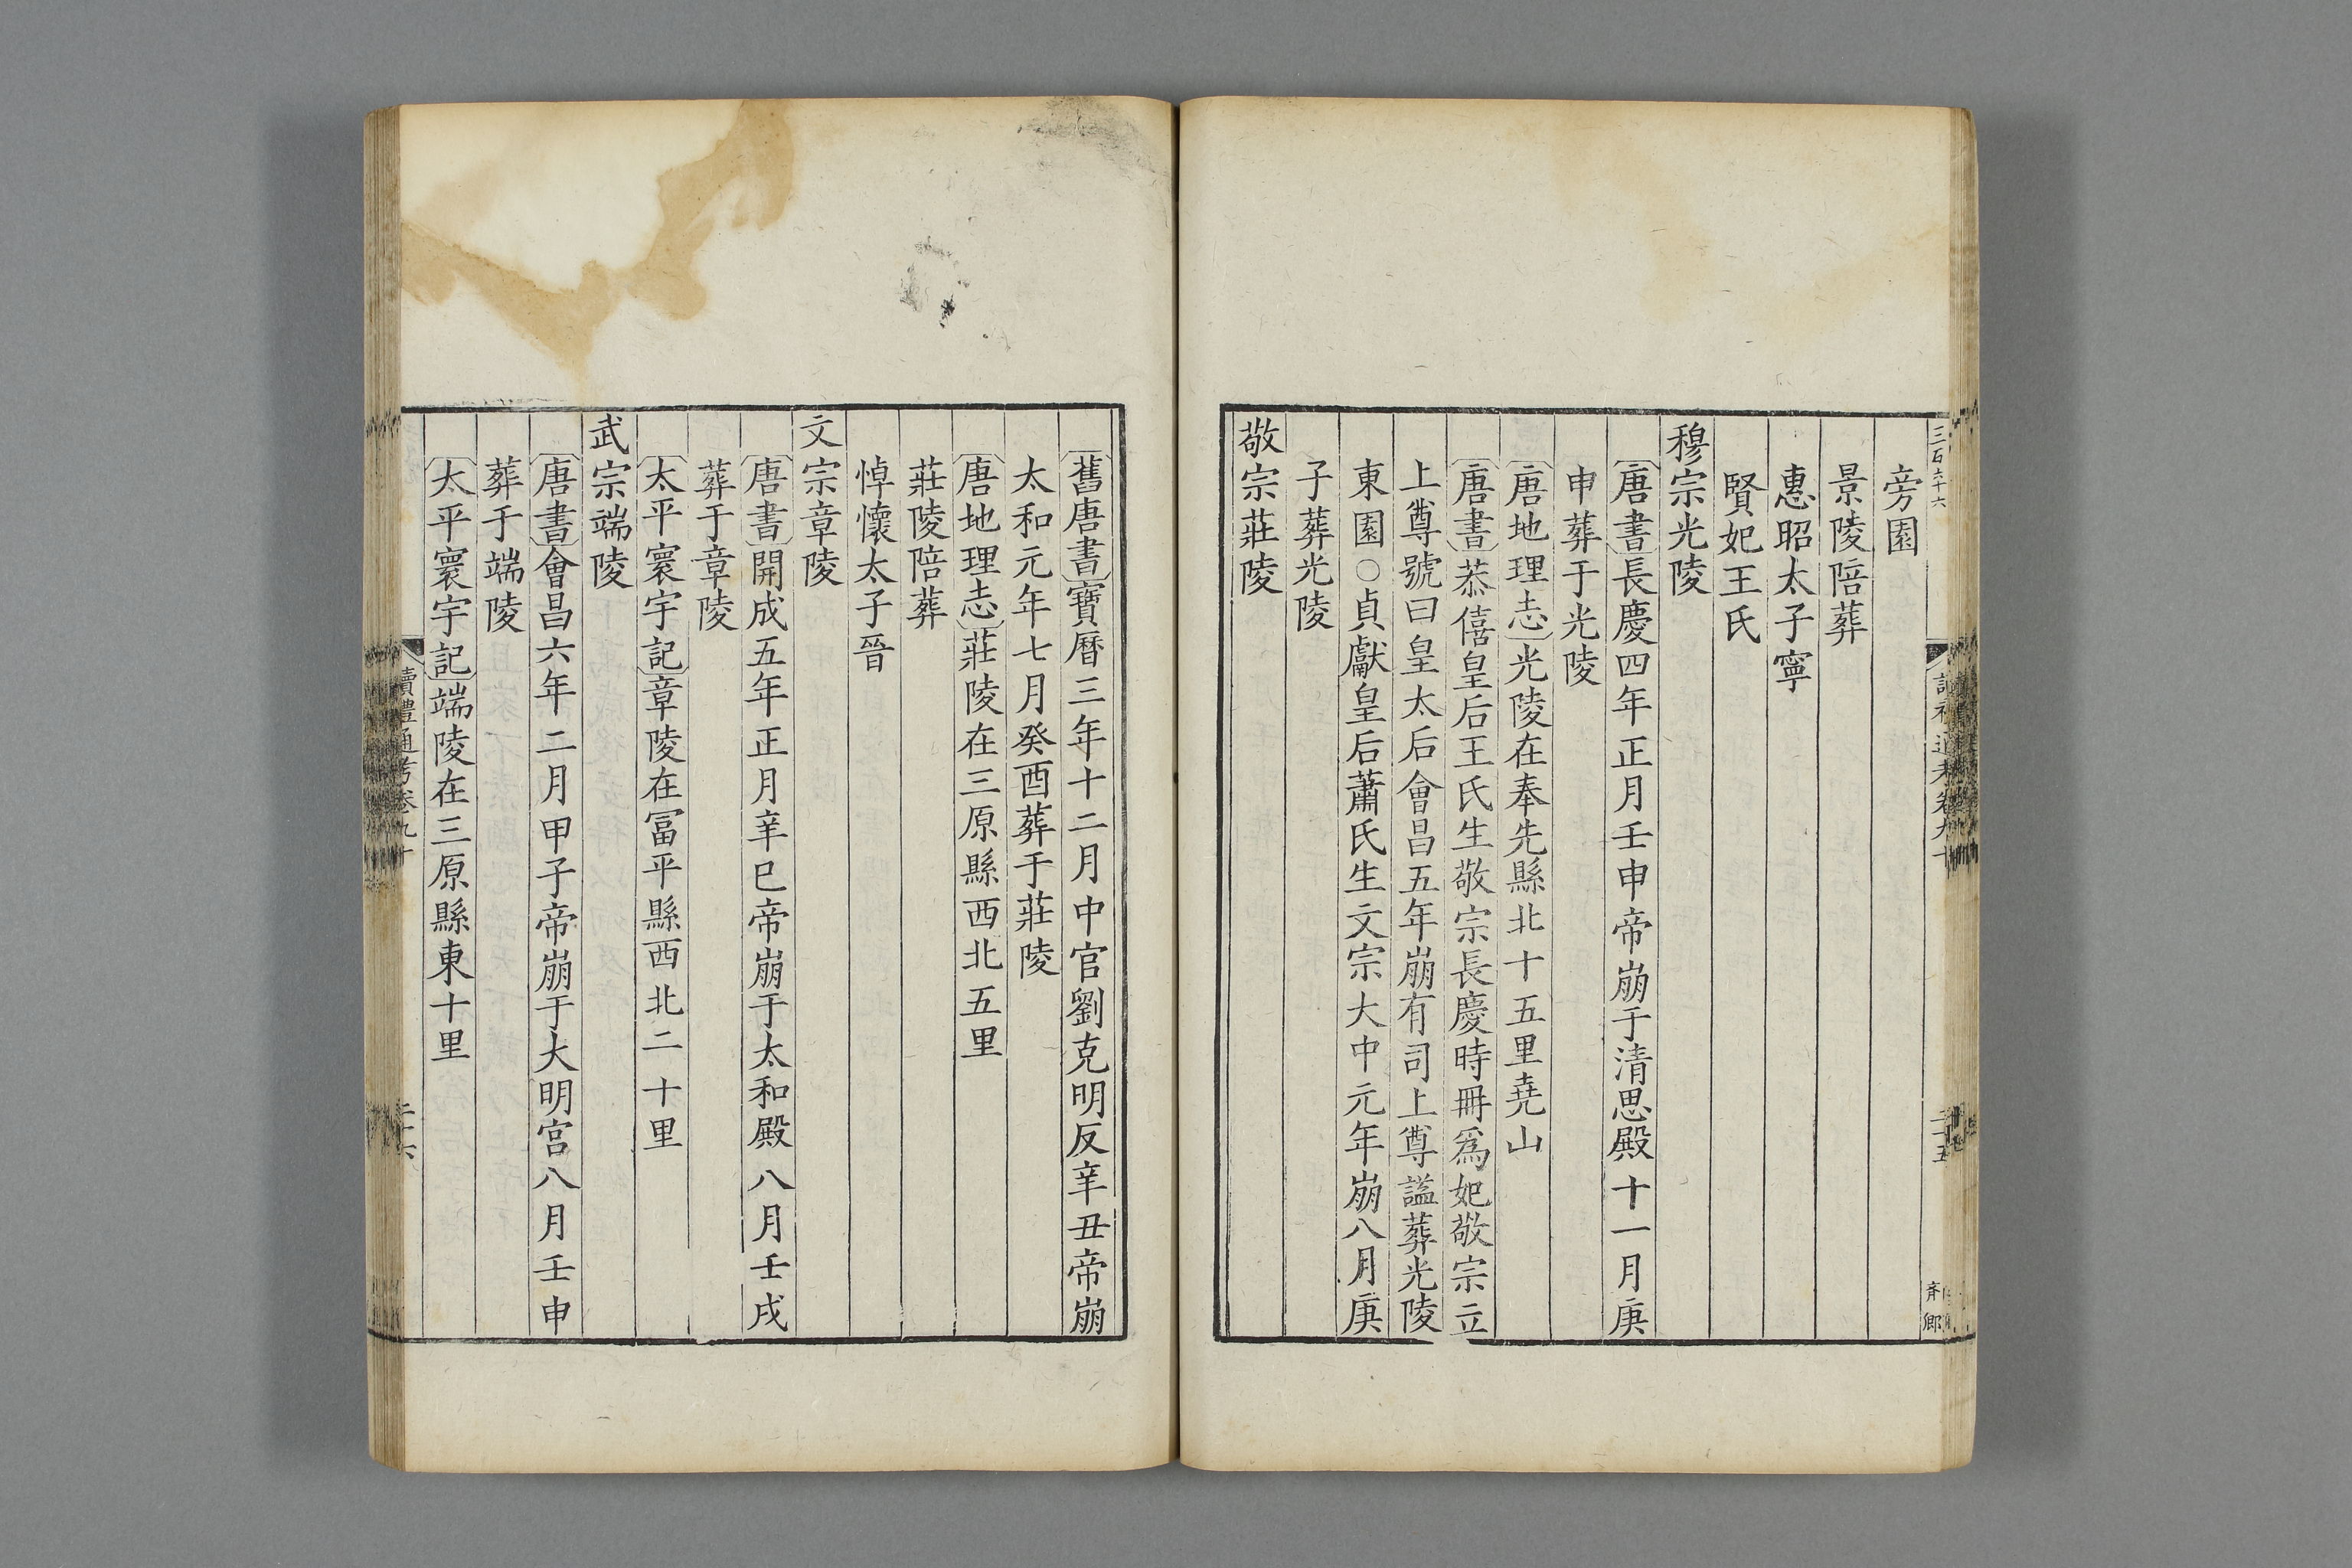 三百六十六
旁園
景陵陪葬
惠昭太子寧
賢妃王氏
穆宗光陵
〔唐書〕長慶四年正月壬申帝崩于清思殿十一月庚
申葬于光陵
〔唐地理志〕光陵在奉先縣北十五里堯山
〔唐書〕恭僖皇后王氏生敬宗長慶時冊爲妃敬宗立
上尊號曰皇太后會昌五年崩有司上尊諡葬光陵
東園○貞獻皇后蕭氏生文宗大中元年崩八月庚
子葬光陵
敬宗莊陵
〔舊唐書〕寶曆三年十二月中官劉克明反辛丑帝崩
太和元年七月癸酉葬于莊陵
〔唐地理志〕莊陵在三原縣西北五里
莊陵陪葬
悼懷太子晉
文宗章陵
〔唐書〕開成五年正月辛巳帝崩于太和殿八月壬戌
葬于章陵
〔太平寰宇記〕章陵在冨平縣西北二十里
武宗端陵
〔唐書〕會昌六年二月甲子帝崩于大明宮八月壬申
葬于端陵
〔太平寰宇記〕端陵在三原縣東十里
讀禮通考卷九十
二十六